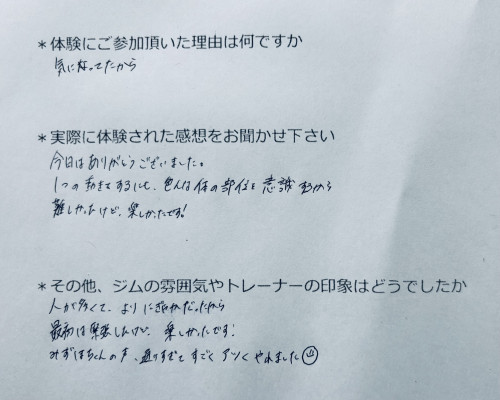 ＊体験にご参加頂いた理由は何ですか
気になってたから
＊実際に体験された感想をお聞かせ下さい
今日はありがとうございました。
1つの動きをするにも、色んな体の部位を意識するから
難しかったけど、楽しかったです!
＊その他、ジムの雰囲気やトレーナーの印象はどうでしたか
人が多くて、よりにぎやかだったから
最初は緊張したけど、楽しかったです!
みずほちゃんの声、通りすぎてすごくアツくやれました